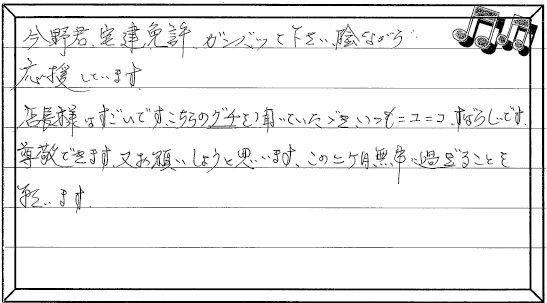 今野君、宅建免許、ガンバッて下さい、陰ながら
応援しています。
店長様はすごいです、こちらのグチを聞いていただき、いつもニコニコ、すばらしいです。
尊敬できます、又お願いしようと思います、この二ケ月無事に過ぎることを
願います。